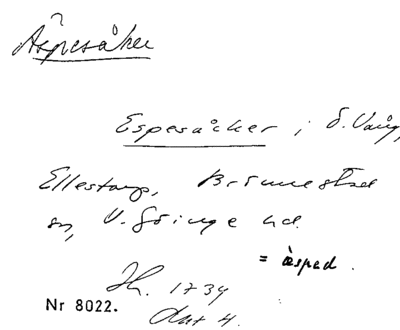 Äspesåker
Espesåcker i S. Vång,
Ellestorp, Brönnestad
sn, V. Göinge hd.
= äsped.
Jb. 1734
Akt 4.
Nr 8022.